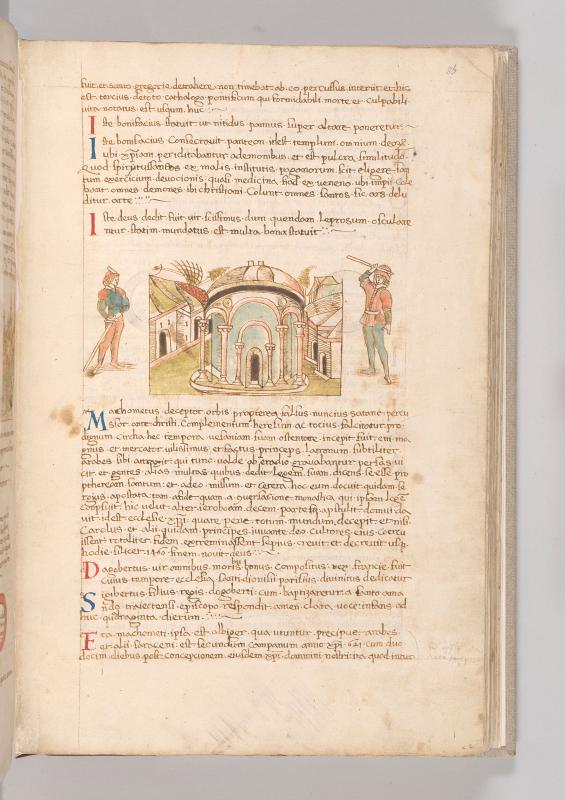 fuit et santo gregorio detrahere non timebat ab eo percussus interiit et hic
est tercius detoto cathologo pontificum qui formidabili morte et culpabili
vita notatus est usqum huc
Iste bonifacius statuit ut nitidus pannus super altare poneretur
Iste bonifacius Consecravit panteon idest templum omnium deorum
ubi xpiani periditabantur ademonibus et est pulcra similitudo
quod spiritussanctus ex malis institutis paganorum scit elipere
tum exercicium devocionis quasi medicina fiad ex veneno ubi impii Cole
bant omnes demones ibi christiani Colunt omnes santos sic ars delu
ditur arte
Iste deus dedit fuit vir scissimus dum quendam leprosum osculare
ntur statim mundatus est multa bona statuit
Machometus deceptor orbis propterea falsus nuncius satane percu
ssor ante christi Complementum heresum ac tocius falcitatis pro
digium circha hec tempora vesaniam suam ostentare incepit fuit enim ma
gnus et mercator vilissimus et factus princeps latronum subtiliter
arabes sibi qui tunc valde ab gravabantur persas vi
cit et gentes alias multas quibus dedit legem suam dicens se esse pro
phetam santum et adeo missum et cetera hoc eum docuit quidam se
rgius apostata tam afide quam a monastica qui ipsam legem
Composuit hic velut alter ieroboam decem partes domui da
vit idest ecclesie xpi quare pene totum mundum decepit et nisi
Carolus et alii quidam principes iuvante deo cultores eius coercu
issent totaliter fidem exterminassent sepius crevit et decrevit usque
hodie scilicet 1460 finem novit deus
Dagobertus vir omnibus moribus bonus compositus rex francie fuit
cuius tempore ecclesia santi dionisii parisius divinitus dedicatur
Sigibertus filius regis dogoberti cum baptizaretur a santo ama
ndo traiectensi episcopo respondit amen clara voce infans ad
huc quadraginta dierum
Era machometi ipsa est alhiger qua utuntur precipue arabes
et alii saraceni est secundum Campanum anno xpi 621 cum duo
decim diebus post concepcionem eiusdem xpi domini nostri ita quod intus